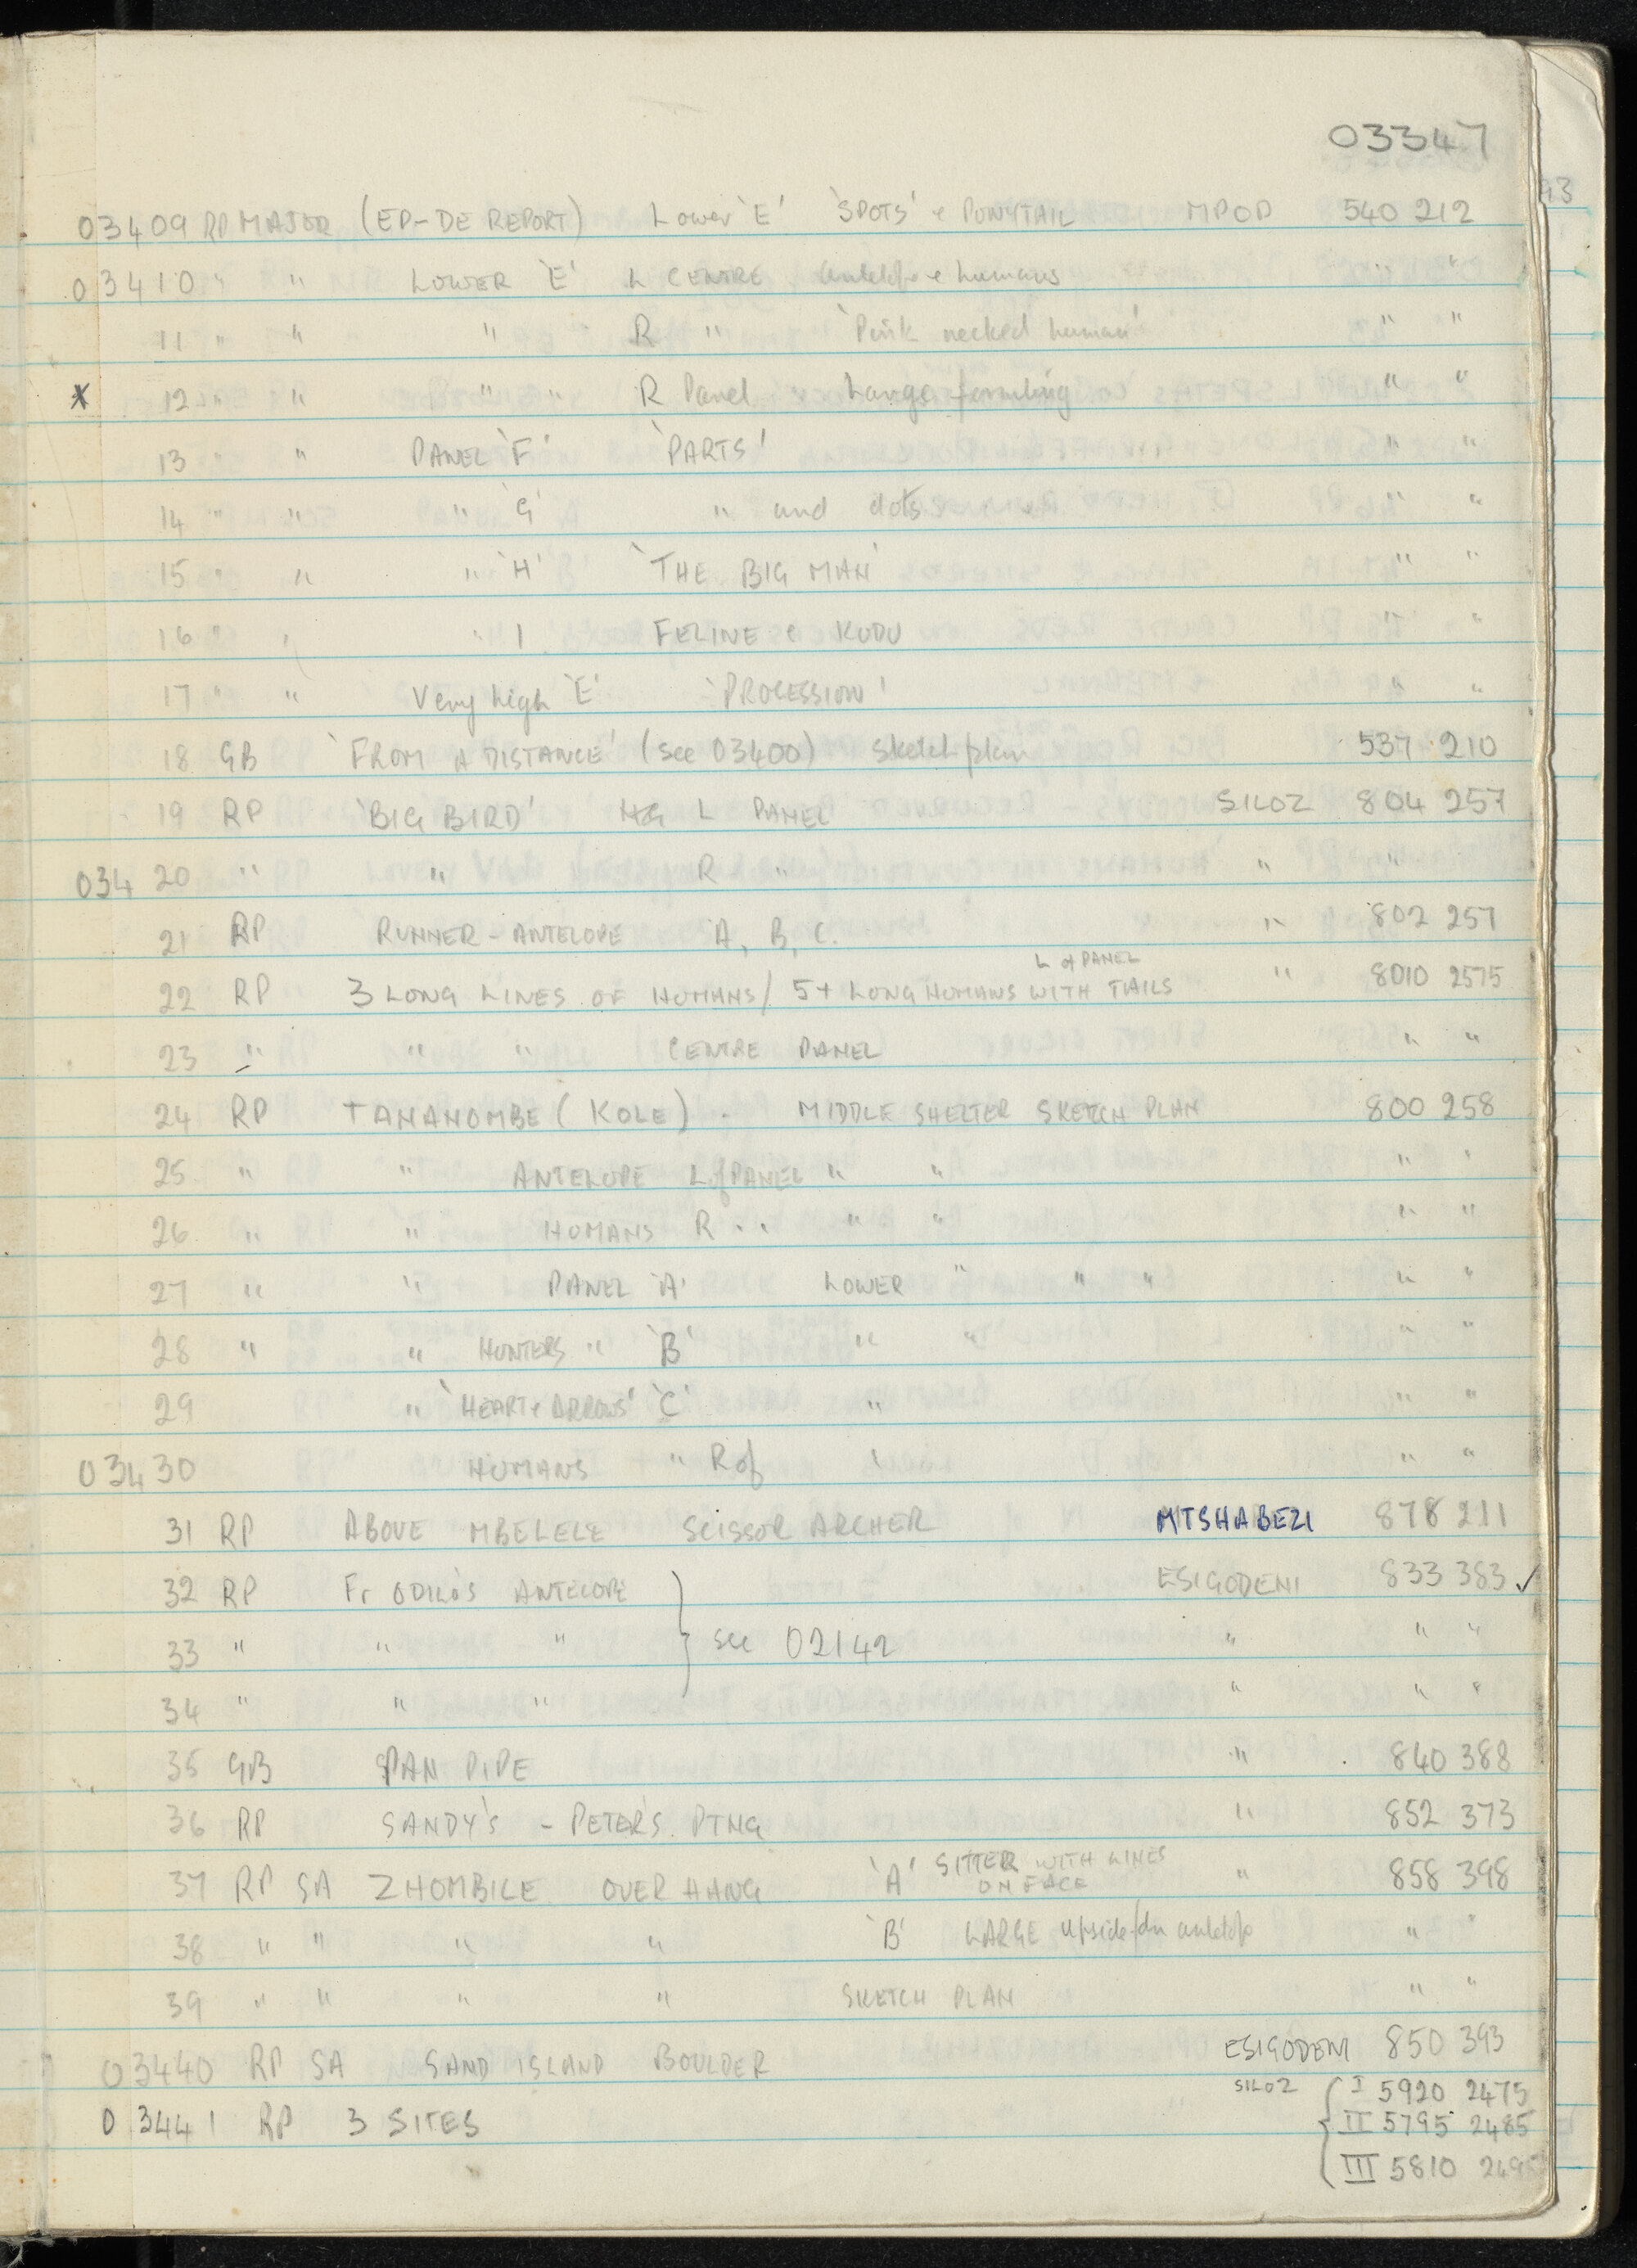 03347
03409 RP MAJOR (EP-DE REPORT) Lower 'E' 'SPOTS' & PONYTAIL MPOP 540 212
03410 " " LOWER 'E' L CENTRE antelope & humans " "
11 " " " R " 'Pink necked human' " "
X 12 " " " " R Panel " "
13 " " PANEL 'F' 'PARTS' " "
14 " " " 'G' " and dots " "
15 " " " 'H' 'THE BIG MAN' " "
16 " " " I FELINE & KUDU " "
17 " " Very high 'E' 'PROCESSION' " "
18 GB 'FROM A DISTANCE' (see 03400) Sketch plan 537 210
19 RP 'BIG BIRD' L PANEL SILOZ 804 257
03420 " " R " " " "
21 RP RUNNER - ANTELOPE A, B, C. " 802 257
L of PANEL
22 RP 3 LONG LINES OF HUMANS / 5+ LONG HUMANS WITH TAILS " 8010 2575
23 " " " CENTRE PANEL " "
24 RP TANANOMBE (KOLE) . MIDDLE SHELTER SKETCH PLAN 800 258
25 " " ANTELOPE L of PANEL " " " "
26 " " HUMANS R " " " " "
27 " " PANEL 'A' LOWER " " " " "
28 " " HUNTERS " 'B' " " " "
29 " 'HEART & ARROWS' 'C' " " "
03430 HUMANS " R of " " "
31 RP ABOVE MBELELE SCISSOR ARCHER MTSHABEZI 878 211
32 RP Fr ODILO'S ANTELOPE ESIGODENI 833 383 ✓
33 " " " } see 02142 " " "
34 " " " " " "
35 GB PAN PIPE " 840 388
36 RP SANDY'S - PETER'S PTNG " 852 373
37 RP SA ZHOMBILE OVERHANG 'A' SITTER WITH LINES ON FACE " 858 398
38 " " " " 'B' LARGE upside/dn antelope " "
39 " " " " SKETCH PLAN " "
03440 RP SA SAND ISLAND BOULDER ESIGODENI 850 393
03441 RP 3 SITES SILOZ { I 5920 2475
II 5795 2485
III 5810 249